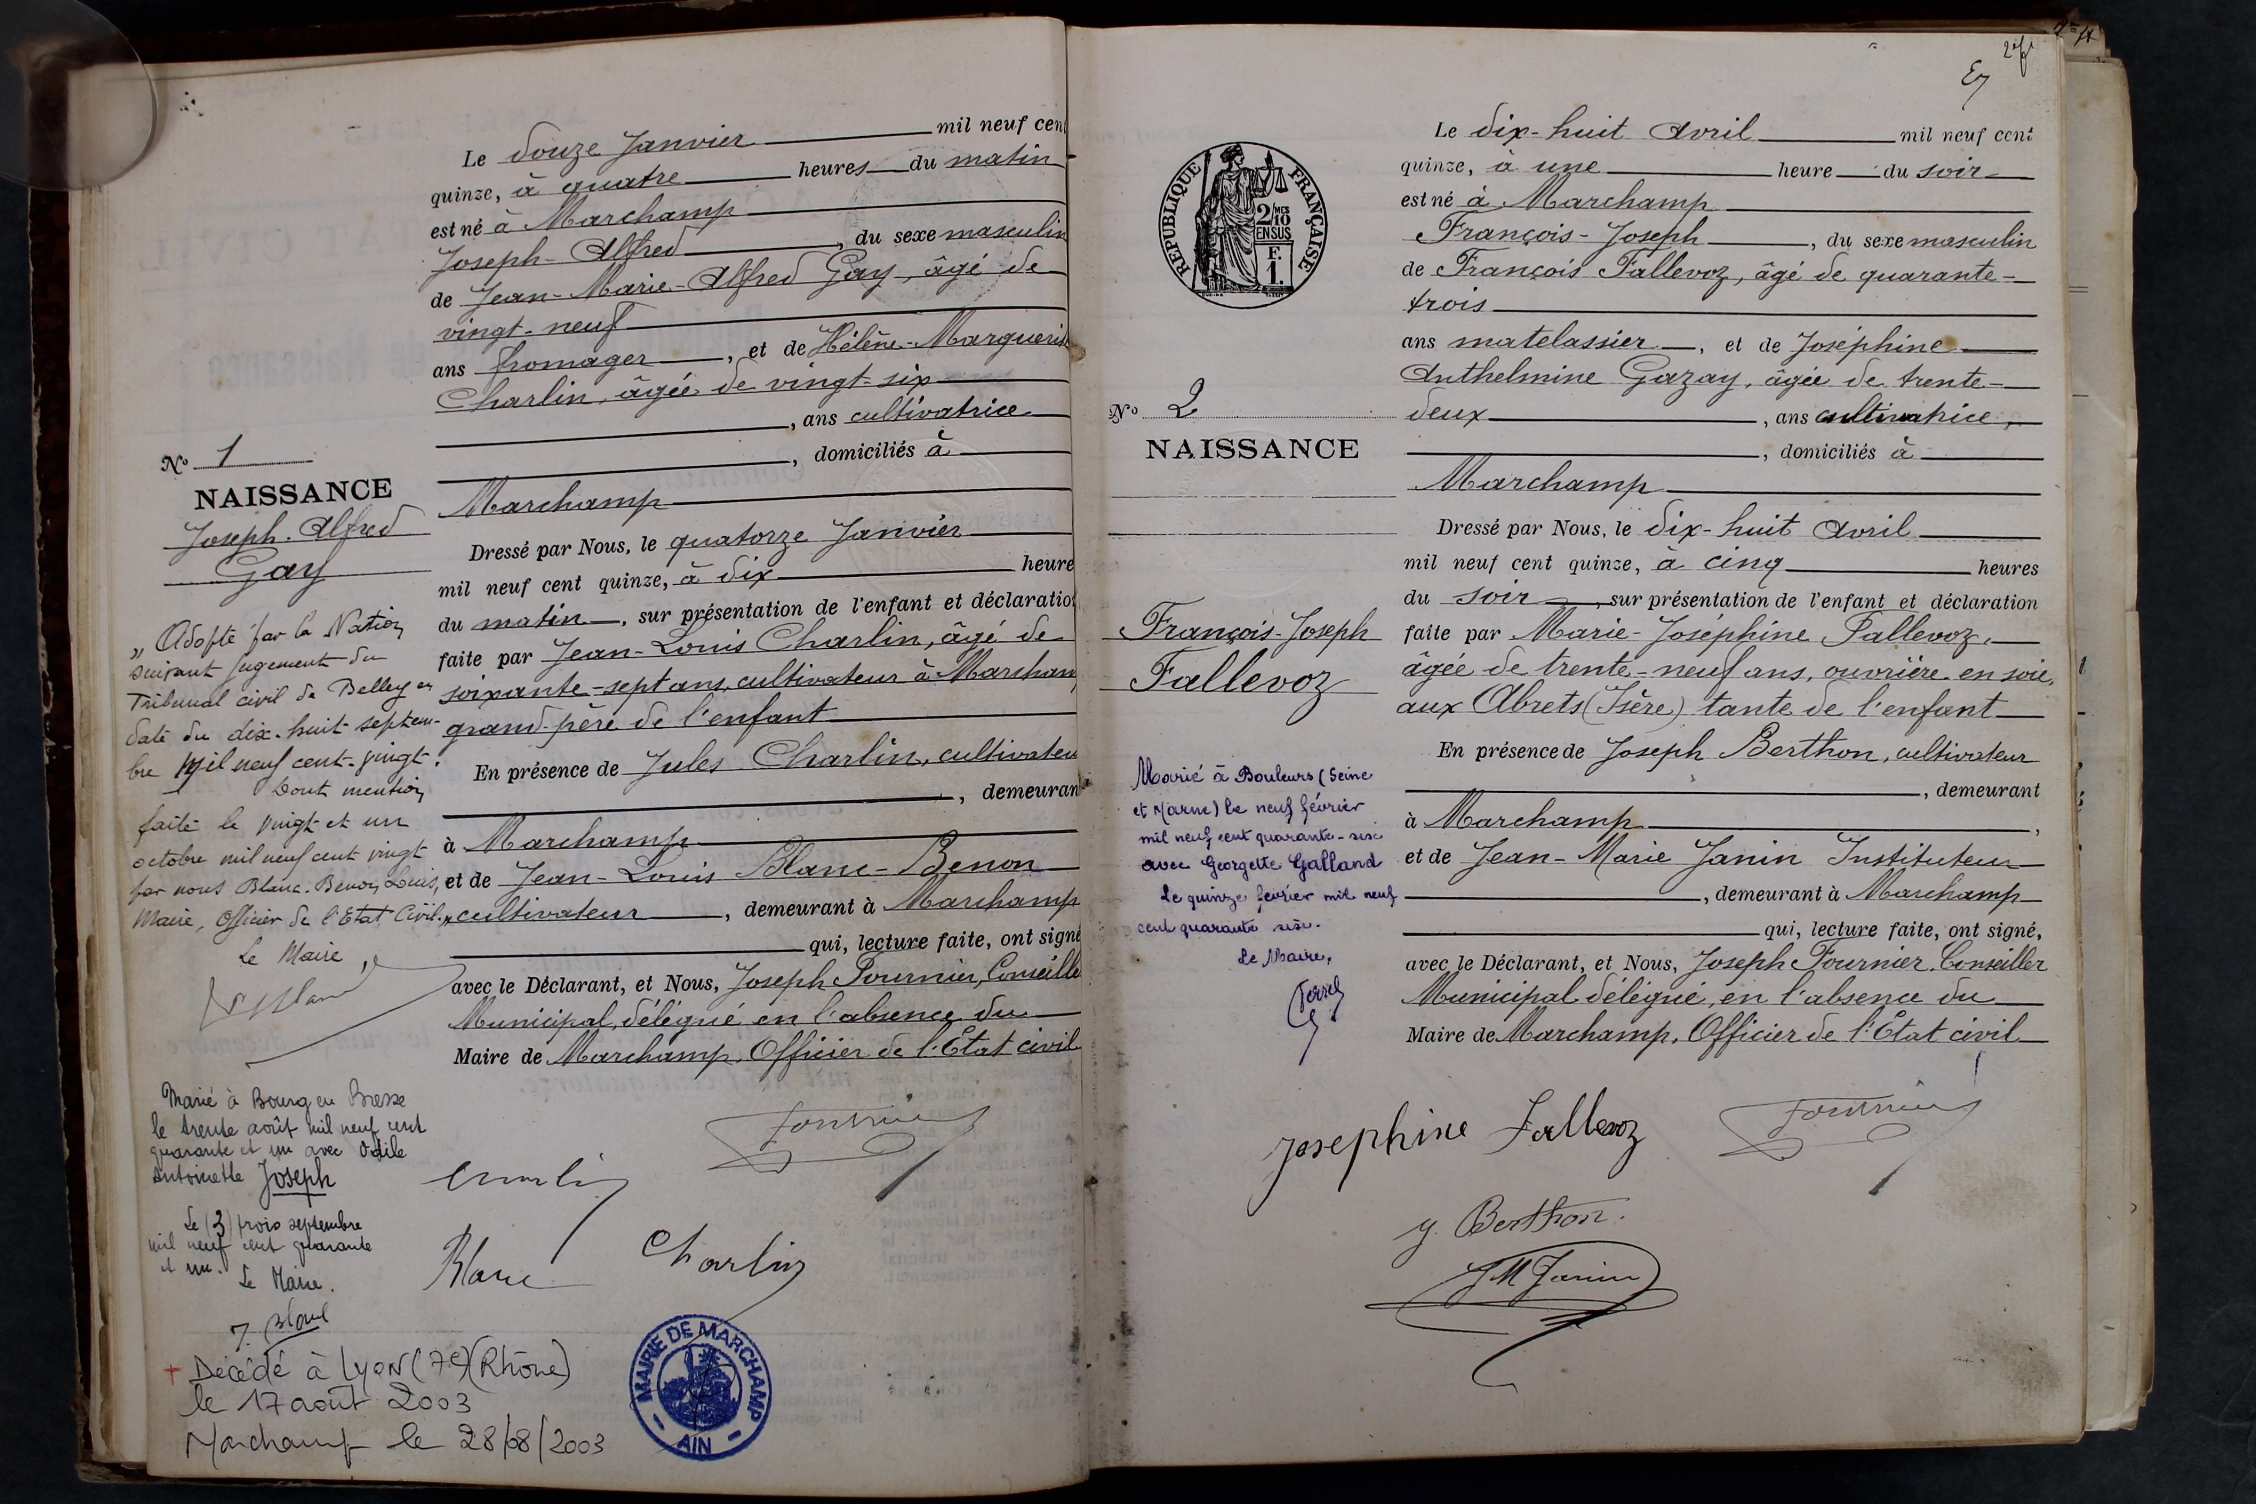 Le douze Janvier mil neuf cent
quinze, à quatre heures du matin
est né à Marchamp
Joseph-Alfred, du sexe masculin
de Jean-Marie-Alfred Gay, âgé de
vingt-neuf
ans fromager, et de Hélène-Marguerit
Charlin, âgée de vingt-six
, ans cultivatrice
, domiciliés à
Marchamp
Dressé par Nous, le quatorze Janvier
mil neuf cent quinze, à dix heure
du matin, sur présentation de l'enfant et déclaration
faite par Jean-Louis Charlin, âgé de
soixante-sept ans, cultivateur à Marcham
grand-père de l'enfant
En présence de Jules Charlin, cultivateu
, demeuran
à Marchamp
et de Jean-Louis Blanc-Benon
cultivateur, demeurant à Marchamp
qui, lecture faite, ont signé
avec le Déclarant, et Nous, Joseph Fournier, Conseille
Municipal, délégué en l'absence du
Maire de Marchamp, Officier de l'Etat civil
Fournier
Charlin
Blanc
Charlin
MAIRIE DE MARCHAMP
AIN
N° 1
NAISSANCE
Joseph-Alfred
Gay
„ Adopté par la Nation
suivant jugement du
Tribunal civil de Belley en
date du dix-huit septem-
bre mil neuf cent-vingt.
Dont mention
faite le vingt et un
octobre mil neuf cent vingt
par nous Blanc-Benon Louis,
Maire, Officier de l'Etat Civil. „
Le Maire
Marié à Bourg en Bresse
le trente août mil neuf cent
quarante et un avec Odile
Antoinette Joseph
Le (3) trois septembre
mil neuf cent quarante
et un.
Le Maire.
J. Blanc
+ Décédé à Lyon (7e) (Rhône)
le 17 août 2003
Marchamp le 28/08/2003
REPUBLIQUE FRANÇAISE
2/10
MES
EN SUS
F.
1.
N° 2
NAISSANCE
François-Joseph
Fallevoz
Marié à Bouleurs (Seine
et Marne) le neuf février
mil neuf cent quarante-six
avec Georgette Galland
Le quinze février mil neuf
cent quarante six.
Le Maire,
Le dix-huit Avril mil neuf cent
quinze, à une heure du soir
est né à Marchamp
François-Joseph, du sexe masculin
de François Fallevoz, âgé de quarante-
trois
ans matelassier, et de Joséphine
Anthelmine Gazay, âgée de trente-
deux, ans cultivatrice,
, domiciliés à
Marchamp
Dressé par Nous, le dix-huit Avril
mil neuf cent quinze, à cinq heures
du soir, sur présentation de l'enfant et déclaration
faite par Marie-Joséphine Fallevoz,
âgée de trente-neuf ans, ouvrière en soie,
aux Abrets (Isère) tante de l'enfant
En présence de Joseph Berthon, cultivateur
, demeurant
à Marchamp,
et de Jean-Marie Janin Instituteur
, demeurant à Marchamp
qui, lecture faite, ont signé,
avec le Déclarant, et Nous, Joseph Fournier, Conseiller
Municipal délégué, en l'absence du
Maire de Marchamp, Officier de l'Etat civil
Josephine Fallevoz
Fournier
J. Berthon.
JM Janin